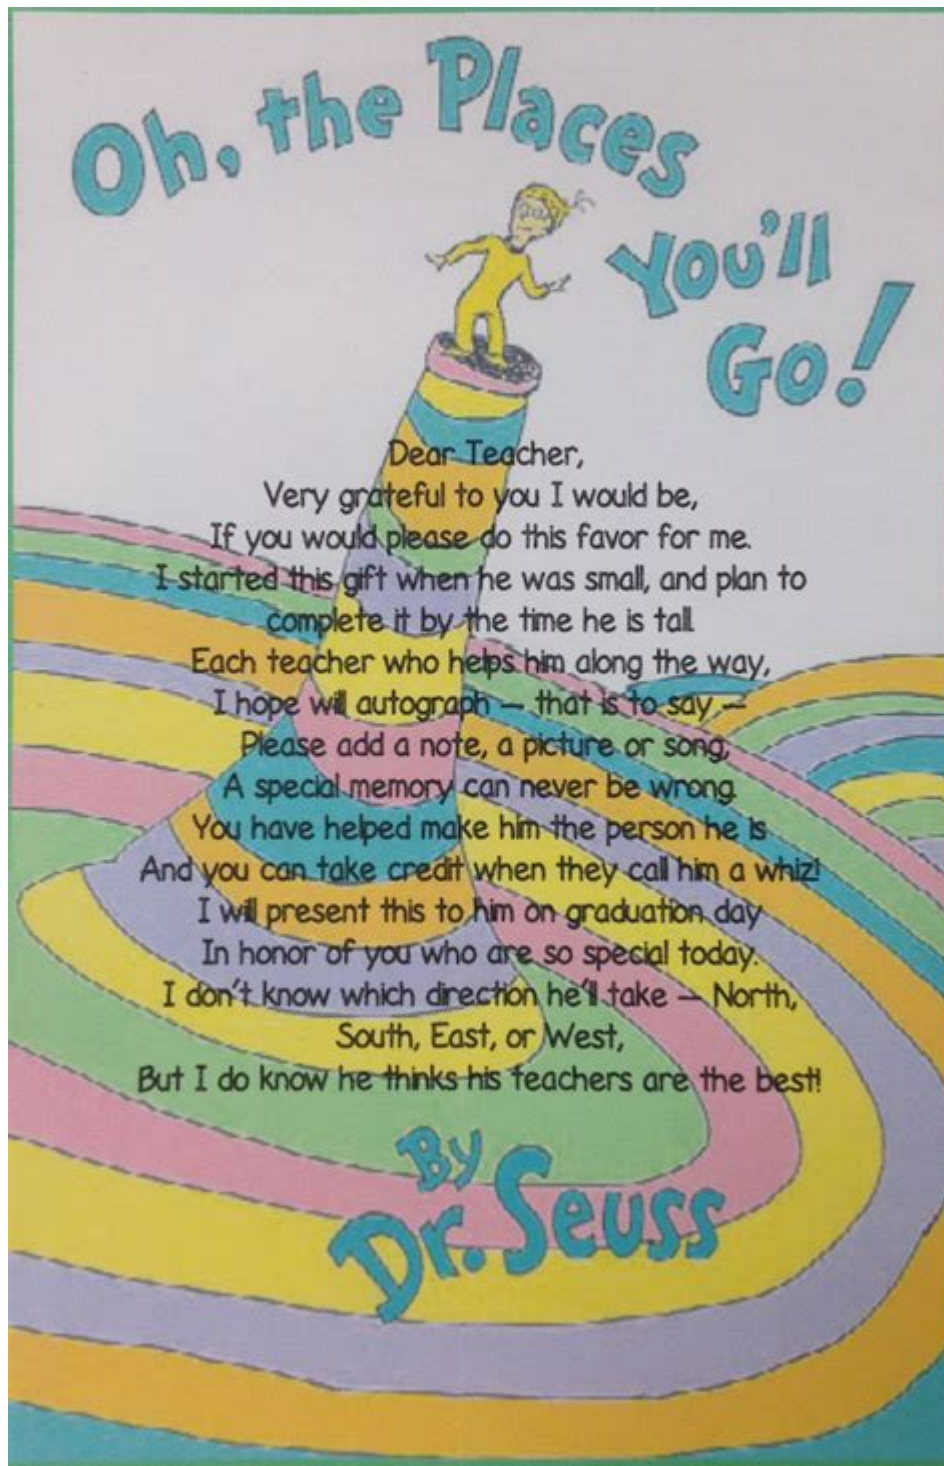 Oh, the Places
You'll
Go!
Dear Teacher,
Very grateful to you I would be,
If you would please do this favor for me.
I started this gift when he was small, and plan to
complete it by the time he is tall.
Each teacher who helps him along the way,
I hope will autograph — that is to say —
Please add a note, a picture or song;
A special memory can never be wrong.
You have helped make him the person he is
And you can take credit when they call him a whiz!
I will present this to him on graduation day
In honor of you who are so special today.
I don't know which direction he'll take — North,
South, East, or West,
But I do know he thinks his teachers are the best!
By
Dr. Seuss